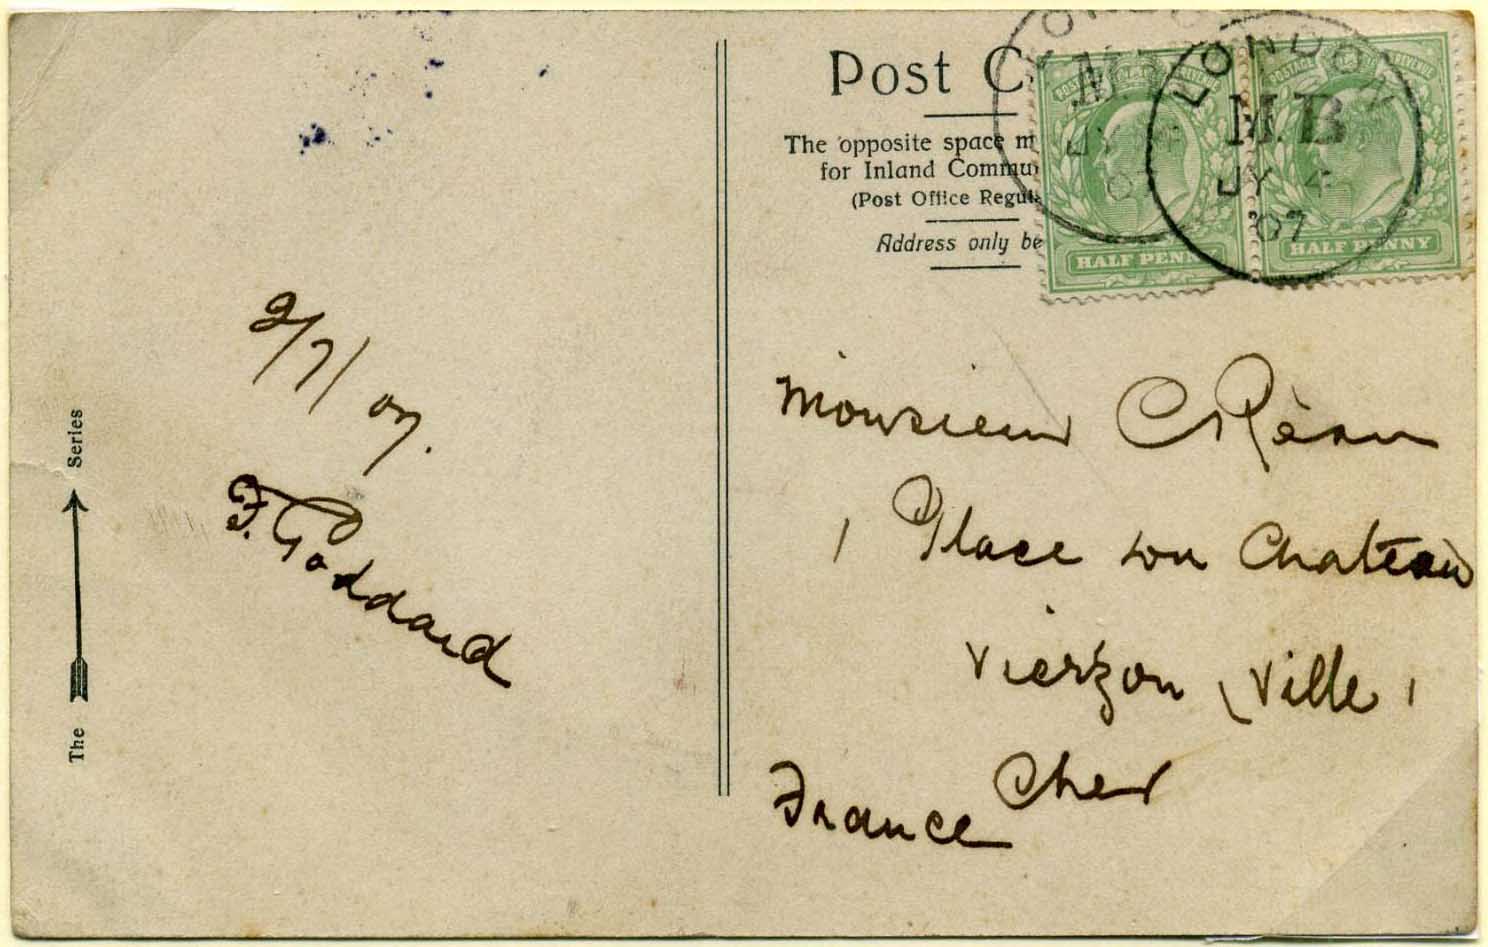 Post C
The opposite space m
for Inland Commun
(Post Office Regula
Address only be
LONDON
M.B
JY 4
07
LONDON
M.B
JY 4
07
HALF PENNY
HALF PENNY
POSTAGE REVENUE
POSTAGE REVENUE
2/7/07.
F. Goddard
The Series
Monsieur C Rèau
1 Place du Chateau
Vierzon (Ville)
Cher
France